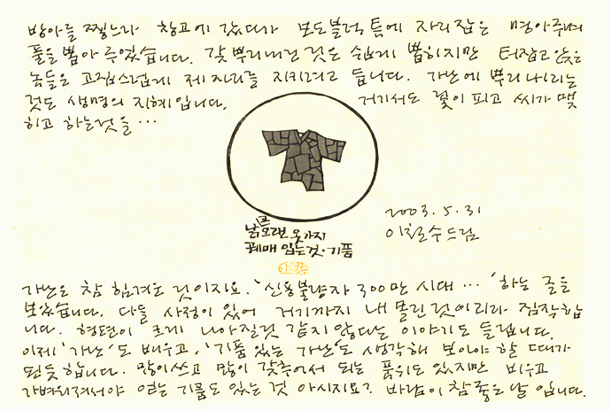 방아를 찧느라 창고에 갔다가 보도블럭 틈에 자리잡은 명아주며
풀을 뽑아 주었습니다. 갓 뿌리내린 것은 쉽게 뽑히지만 터잡고 앉은
놈들은 고집스럽게 제 자리를 지키려고 듭니다. 가난에 뿌리 내리는
것도 생명의 지혜입니다. 거기서도 꽃이 피고 씨가 맺
히고 하는 것을…
낡은
오랜 옷가지
꿰매 입는 것·기품
2003. 5. 31
이철수 드림
가난은 참 힘겨운 것이지요. '신용불량자 300만 시대…' 하는 글을
보았습니다. 다들 사정이 있어 거기까지 내몰린 것이리라 짐작합
니다. 형편이 크게 나아질것 같지 않다는 이야기도 들립니다.
이제 '가난'도 배우고, '기품 있는 가난'도 생각해 보아야 할 때가
된듯 합니다. 많이 쓰고 많이 갖추어서 되는 품위도 있지만 비우고
가벼워져서야 얻는 기품도 있는 것 아시지요? 바람이 참 좋은 날 입니다.